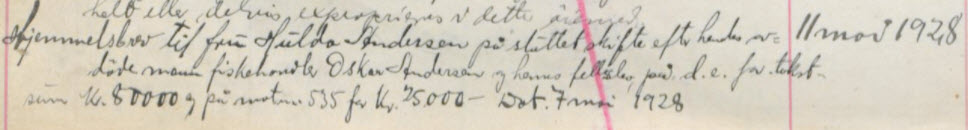 helt eller delvis exproprieres i dette øiemed.
Hjemmelsbrev til fru Hulda Andersen på sluttet skifte efter hendes av= 11 mai 1928
døde mann fiskehandler Oskar Andersen og hennes fellesbo, på d. e. for takst-
sum Kr. 80000 og på matr. 535 for Kr. 25.000 - Dat. 7 mai 1928